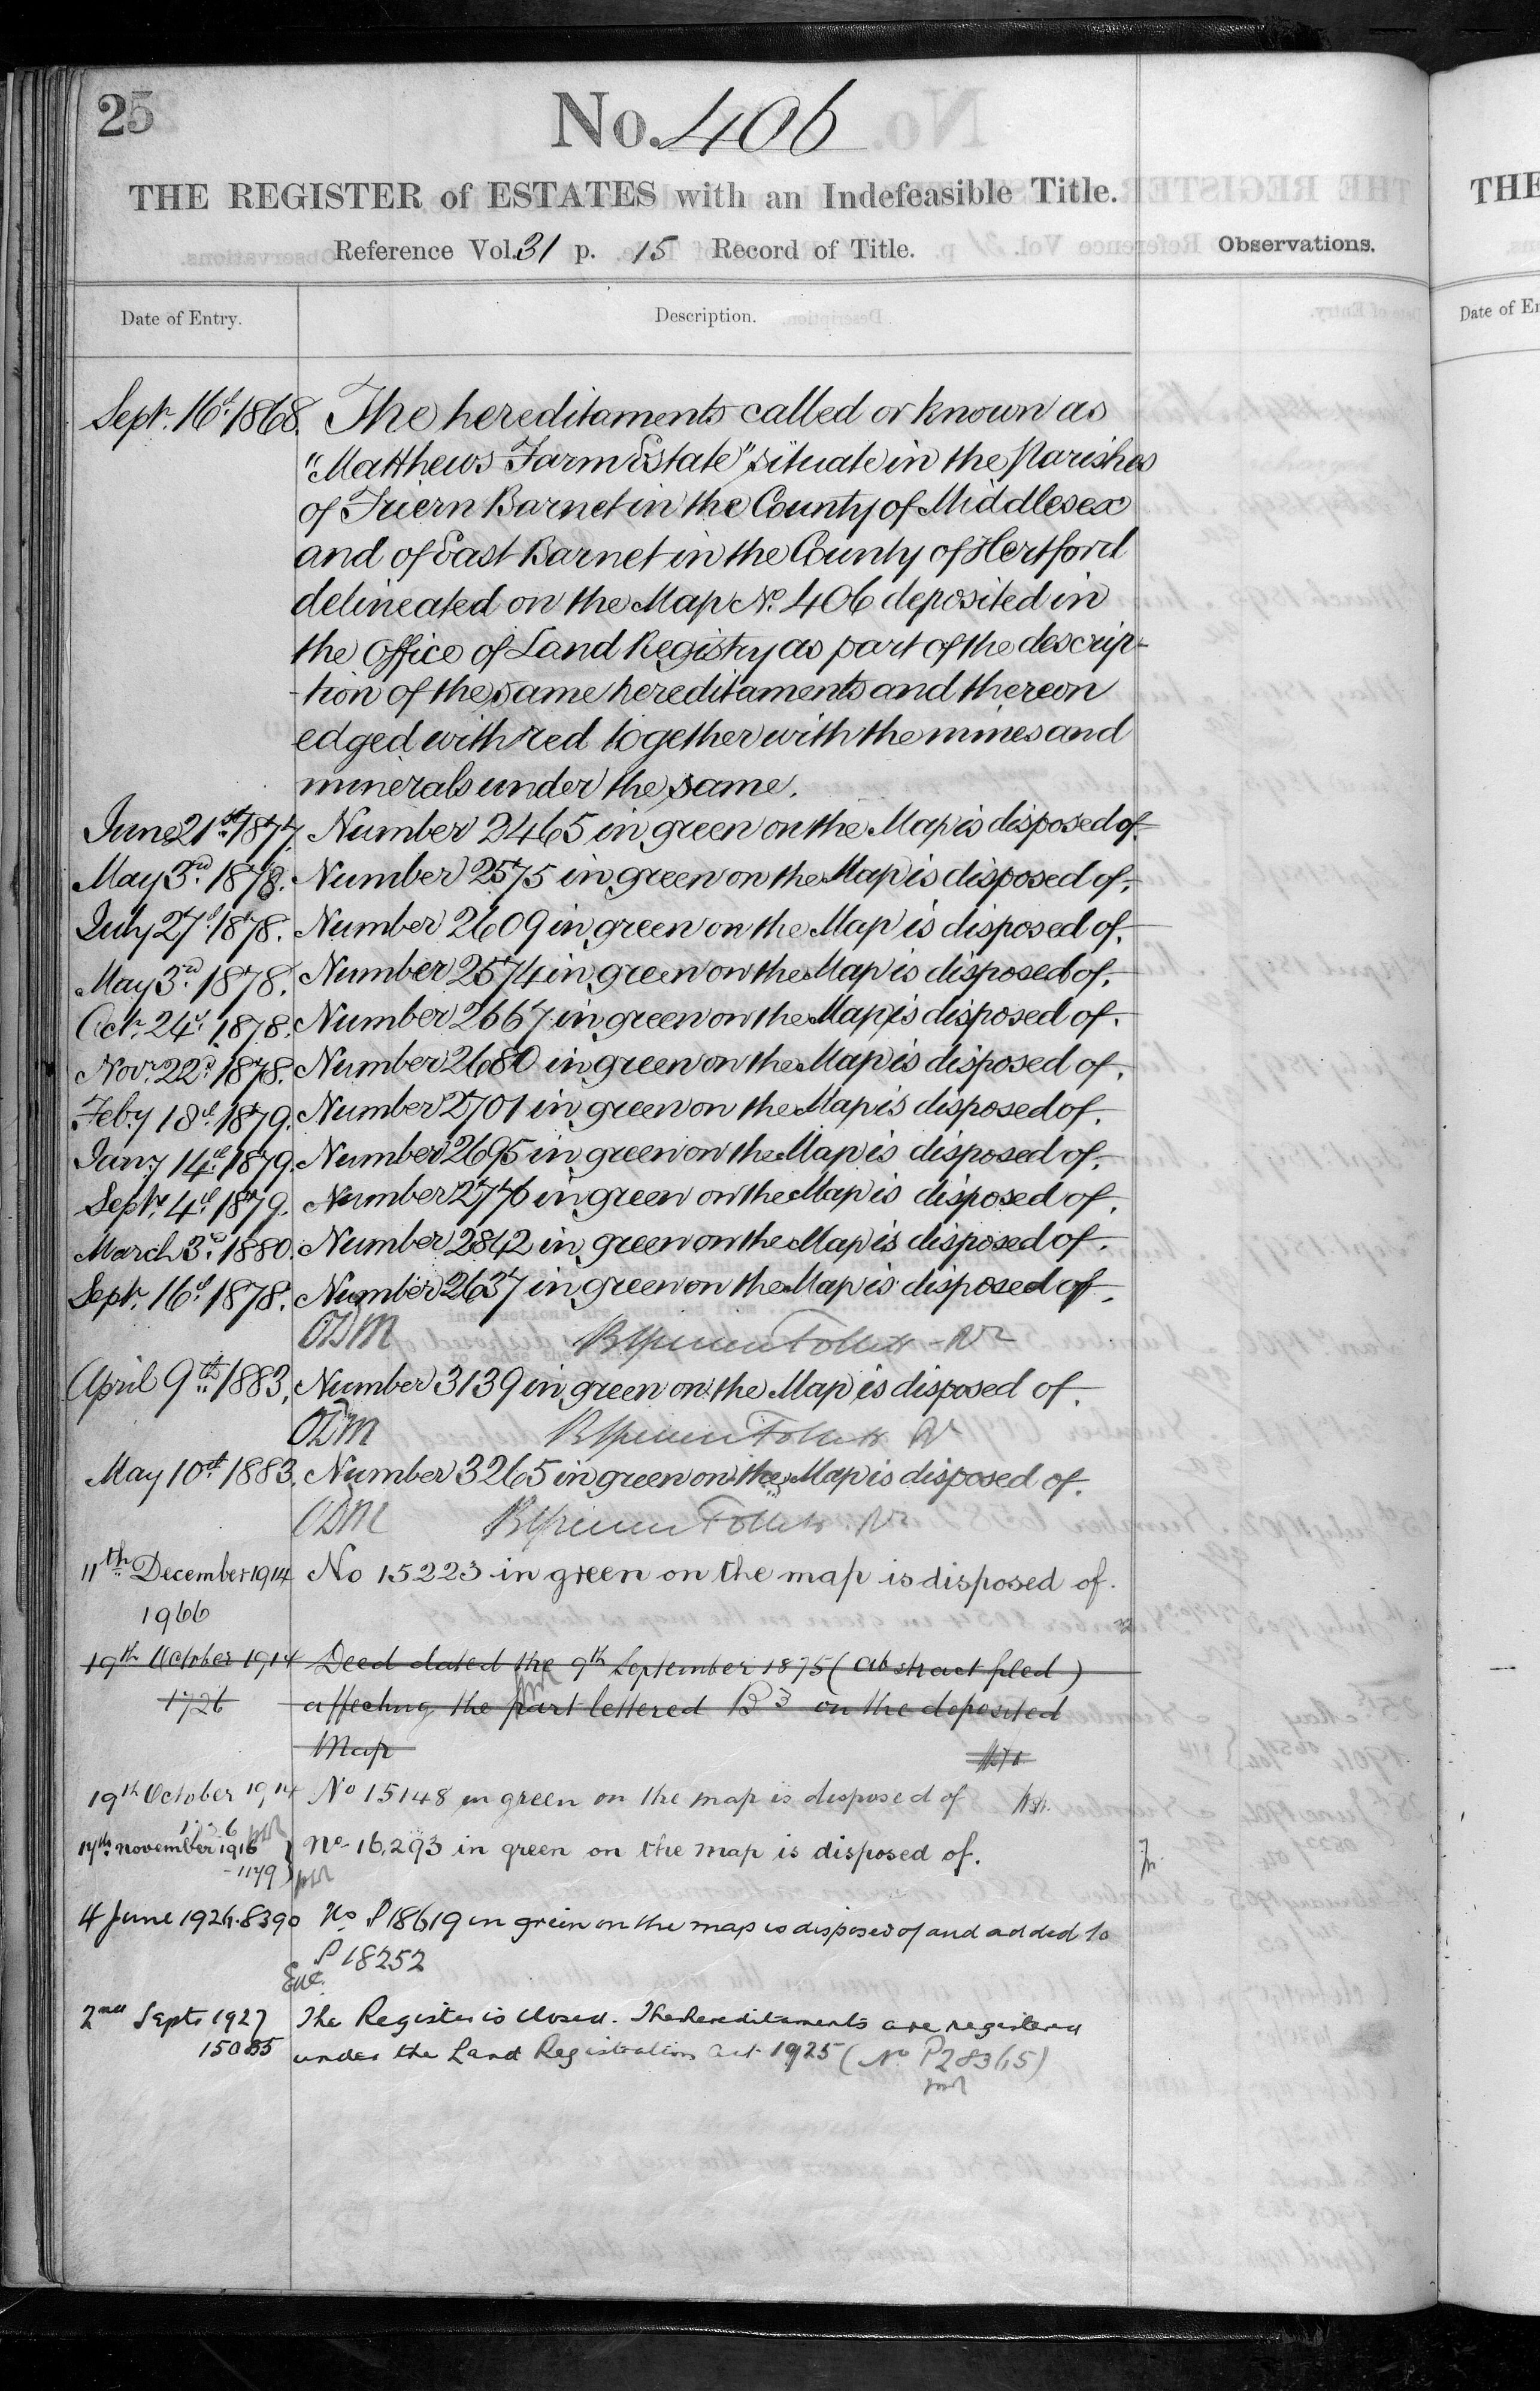 25
No. 406
THE REGISTER of ESTATES with an Indefeasible Title.
Reference Vol. 31 p. 15 Record of Title.
Observations.
Date of Entry.
Description.
Sept. 16th 1868. The hereditaments called or known as
"Matthews Farm Estate" situate in the Parishes
of Friern Barnet in the County of Middlesex
and of East Barnet in the County of Hertford
delineated on the Map No. 406 deposited in
the Office of Land Registry as part of the descrip-
-tion of the same hereditaments and thereon
edged with red together with the mines and
minerals under the same.
June 21st 1877. Number 2465 in green on the Map is disposed of.
May 3rd 1878. Number 2575 in green on the Map is disposed of.
July 27th 1878. Number 2609 in green on the Map is disposed of.
May 3rd 1878. Number 2574 in green on the Map is disposed of.
Octr. 24th 1878. Number 2667 in green on the Map is disposed of.
Novr. 22d 1878. Number 2680 in green on the Map is disposed of.
Feby 18th 1879. Number 2701 in green on the Map is disposed of.
Jany 14th 1879. Number 2695 in green on the Map is disposed of.
Septr. 4th 1879. Number 2776 in green on the Map is disposed of.
March 3d 1880. Number 2842 in green on the Map is disposed of.
Septr. 16th 1878. Number 2637 in green on the Map is disposed of.
ODM
April 9th 1883. Number 3139 in green on the Map is disposed of.
ODM
May 10th 1883. Number 3265 in green on the Map is disposed of.
ODM
11th December 1914 No 15223 in green on the map is disposed of.
1966
19th October 1914 Deed dated the 9th September 1875 (abstract filed)
1726 affecting the part lettered B3 on the deposited
Map
19th October 1914 No 15148 in green on the map is disposed of
17th november 1916 No 16,293 in green on the map is disposed of.
1179
4 June 1926. 8390 No P18619 in green on the map is disposed of and added to
P18252
2nd Sept 1927 The Register is closed. The Hereditaments are registered
15085 under the Land Registration Act 1925 (No P28365)
THE
Date of En